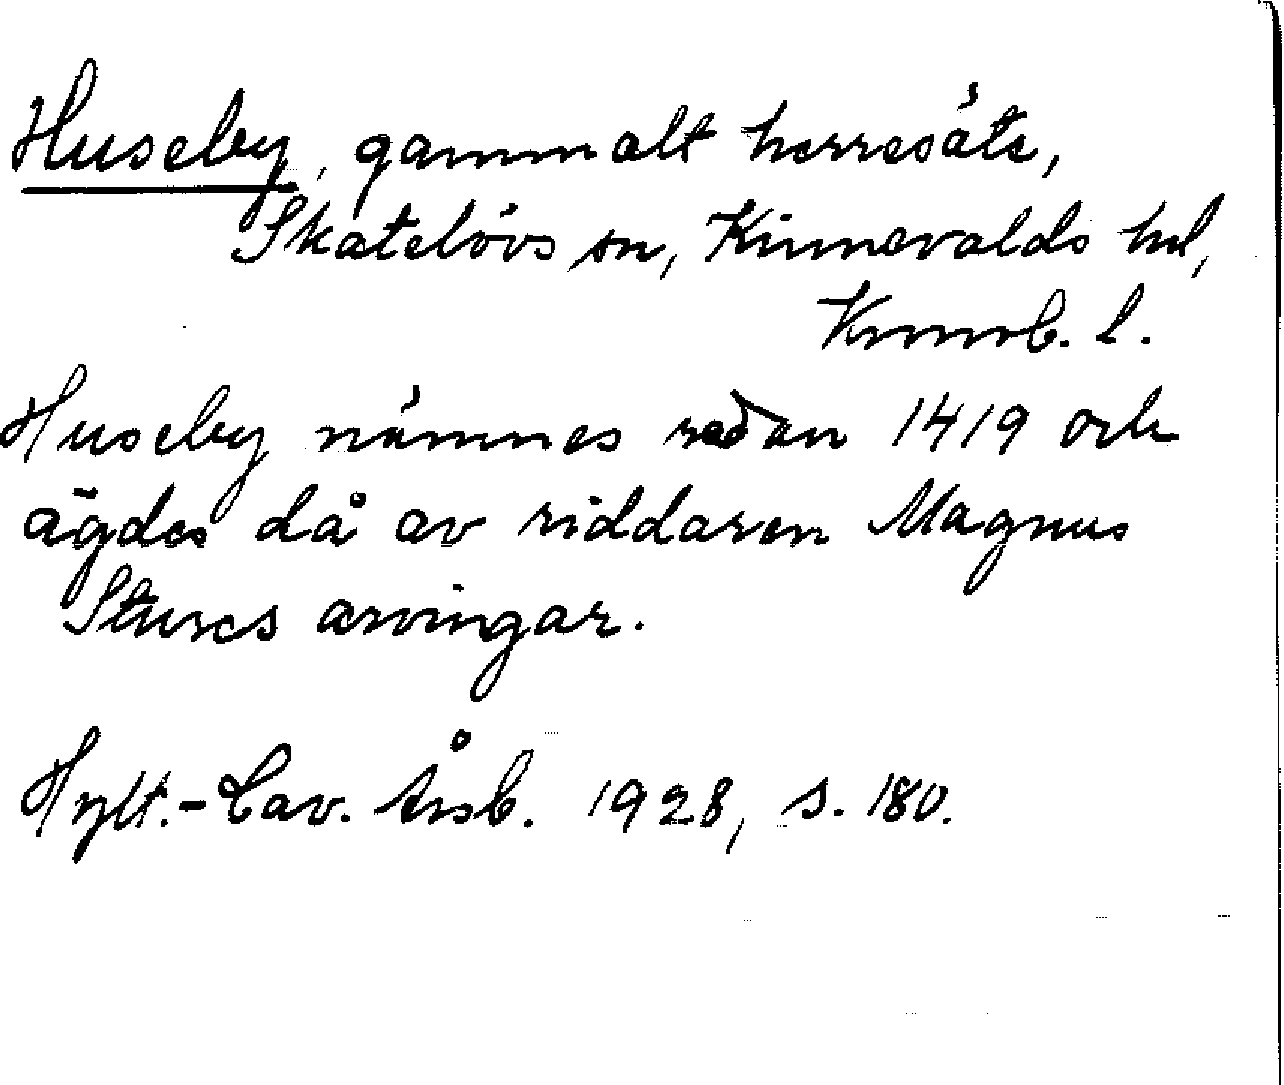 Huseby, gammalt herresäte,
Skatelövs sn, Kinnevalds hd,
Kronob. l.
Huseby nämnes redan 1419 och
ägdes då av riddaren Magnus
Stures arvingar.
Hylt.-Cav. Årsb. 1928, s. 180.